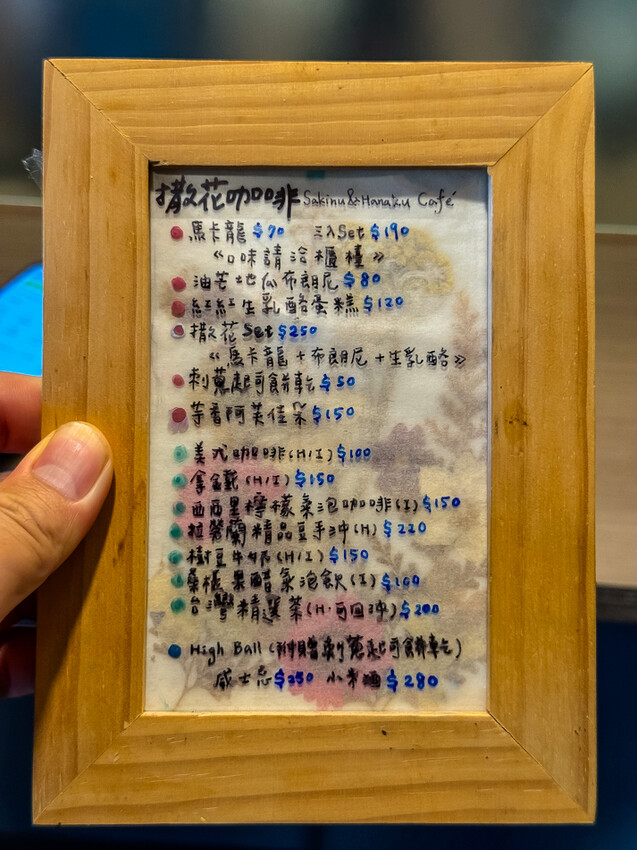 撒花咖啡 Sakinu&Hana'u Café
馬卡龍 $70 三入Set $190
《口味請洽櫃檯》
油芒地瓜布朗尼 $80
紅紅生乳酪蛋糕 $120
撒花Set $250
《馬卡龍+布朗尼+生乳酪》
刺蔥起司餅乾 $50
芋香阿芙佳朵 $150
美式咖啡(H/I) $100
拿鐵(H/I) $150
西西里檸檬氣泡咖啡(I) $150
拉勞蘭精品豆手沖(H) $220
樹豆牛奶(H/I) $150
桑椹果醋氣泡飲(I) $160
台灣精選茶(H.可回沖) $200
High Ball(附贈刺蔥起司餅乾)
威士忌 $250 小米酒 $280